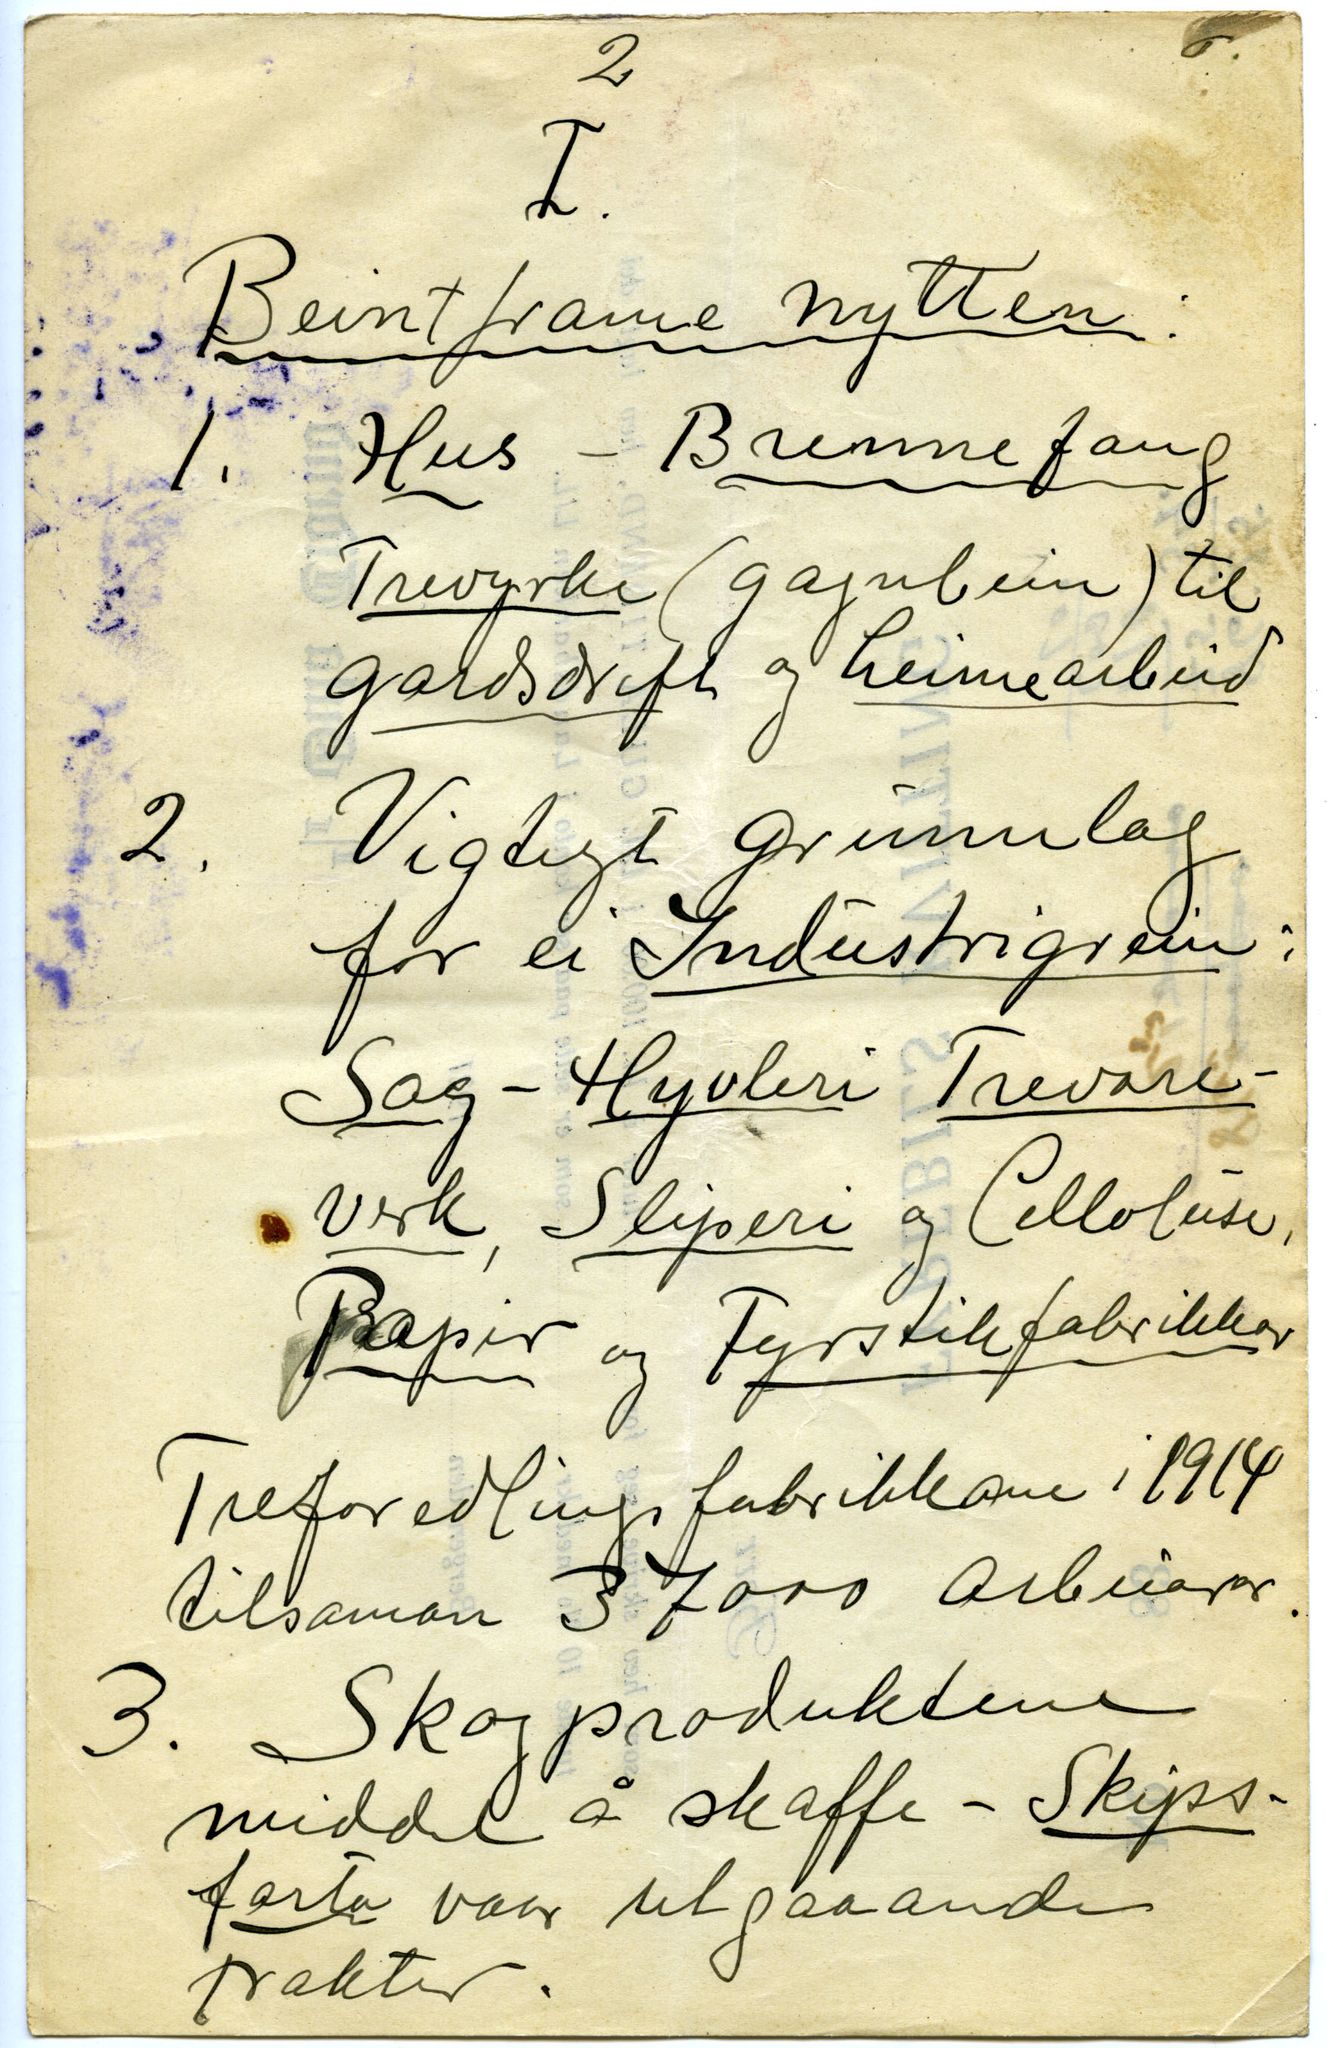 2
I.
Beint frame nytten:
1. Hus - Brennefang
Trevyrke (gagnbein) til
gardsdrift og heimearbeid
2. Vigtugt grunnlag
for ei Industrigrein:
Sag - Hyvleri Trevare-
verk, Sliperi og Celloluse,
Papir og Fyrstikfabrikkar
Treforedlingsfabrikkane i 1914
tilsaman 37000 arbeidarar.
3. Skogproduktene
middel å skaffe - Skips-
farta vaar utgaaande
frakter.